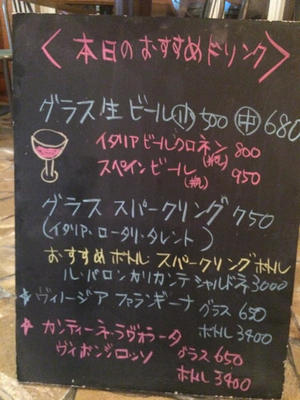 〈本日のおすすめドリンク〉
グラス生ビール小 500 中 680
イタリアビールクロネン(瓶) 800
スペインビール(瓶) 950
グラス スパークリング 750
(イタリア・ロータリ・タレント)
おすすめボトル スパークリングボトル
ル・バロンカリカンテシャルドネ3000
★ヴィージア ファランギーナ グラス 650
ボトル 3400
★カンティーネ・ラヴォラータ
ヴィボンジロッソ グラス 650
ボトル 3400